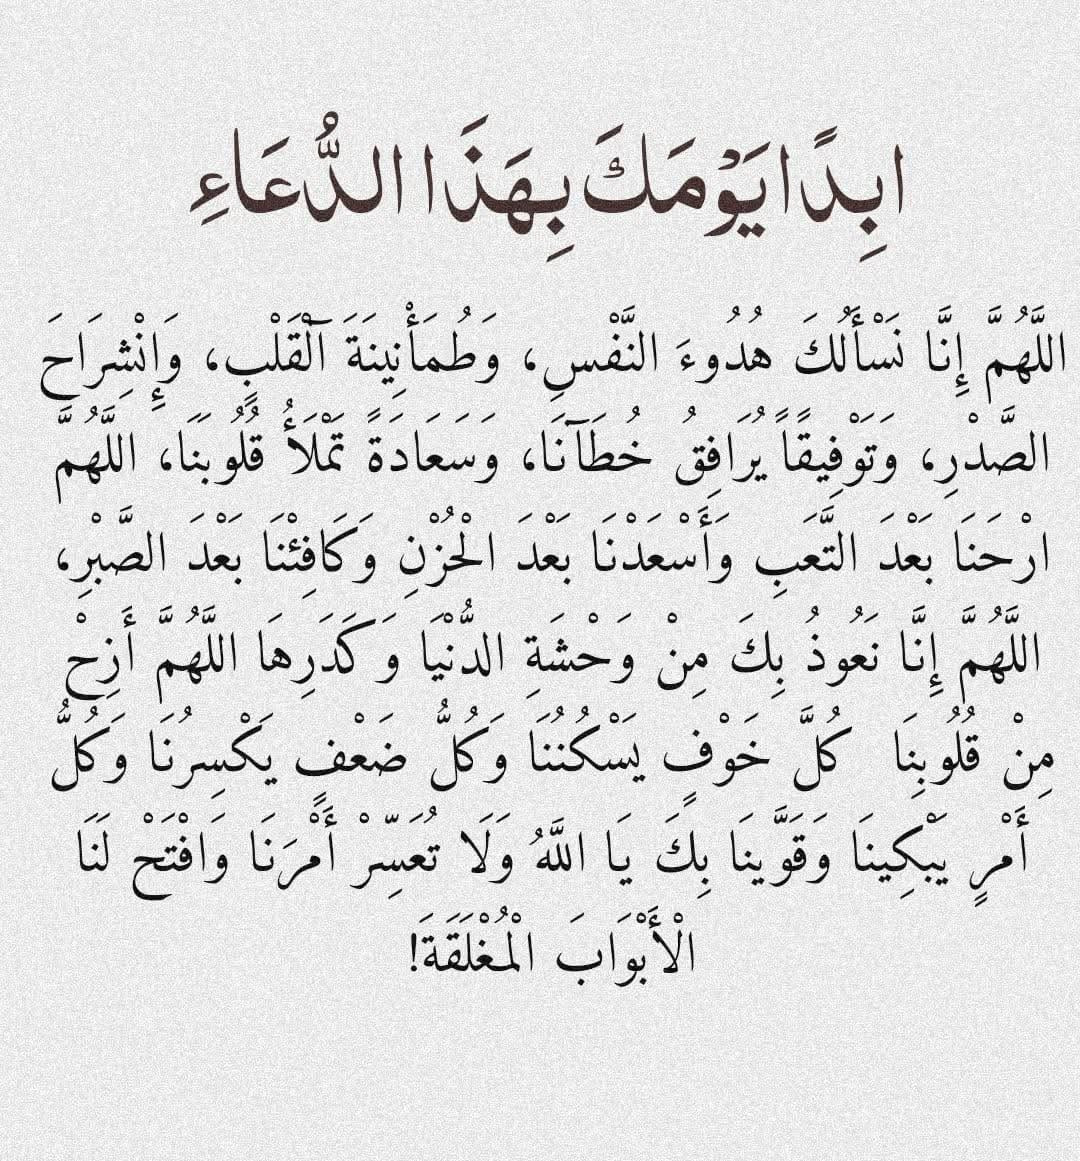 ابِدًا يَوْمَكَ بِهَذَا الدُّعَاءِ
اللَّهُمَّ إِنَّا نَسْأَلُكَ هُدُوءَ النَّفْسِ، وَطُمَأْنِينَةَ الْقَلْبِ، وَإِنْشِرَاحَ
الصَّدْرِ، وَتَوْفِيقًاً يُرَافِقُ خُطَآنَا، وَسَعَادَةً تَمْلَأُ قُلُوبَنَا، اللَّهُمَّ
ارْحَنَا بَعْدَ التَّعَبِ وَأَسْعَدْنَا بَعْدَ الْحُزْنِ وَكَافِئْنَا بَعْدَ الصَّبْرِ،
اللَّهُمَّ إِنَّا نَعُوذُ بِكَ مِنْ وَحْشَةِ الدُّنْيَا وَكَدَرِهَا اللَّهُمَّ أَزِحْ
مِنْ قُلُوبِنَا كُلَّ خَوْفٍ يَسْكُنُنَا وَكُلُّ ضَعْفٍ يَكْسِرُنَا وَكُلُّ
أَمْرٍ يَبْكِينَا وَقَوَّينَا بِكَ يَا اللَّهُ وَلَا تُعَسِّرْ أَمْرَنَا وَافْتَحْ لَنَا
الْأَبْوَابَ الْمُغْلَقَةَ!